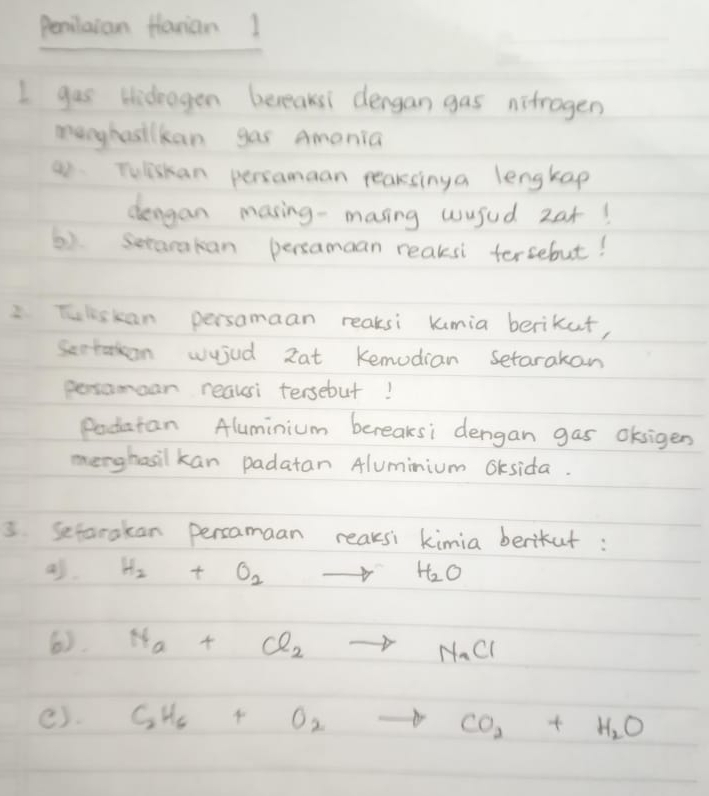 Penilaian Harian 1
1 gas Hidrogen bereaksi dengan gas nitrogen
menghasilkan gas Amonia
a). Tuliskan persamaan reaksinya lengkap
dengan masing-masing wujud zat !
b). Setarakan persamaan reaksi tersebut !
2. Tuliskan persamaan reaksi kimia berikut,
Sertakan wujud zat kemudian setarakan
persamaan reaksi tersebut !
Padatan Aluminium bereaksi dengan gas oksigen
menghasilkan padatan Aluminium Oksida .
3. Setarakan Persamaan reaksi kimia berikut :
a). H₂ + O₂ → H₂O
b). Na + Cl₂ → NaCl
c). C₂H₆ + O₂ → CO₂ + H₂O